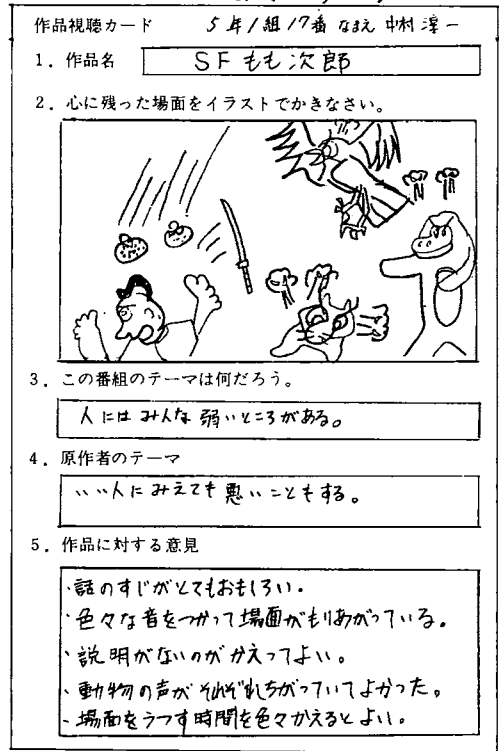 作品視聴カード 5年1組17番 なまえ 中村淳一
1. 作品名 SFもも次郎
2. 心に残った場面をイラストでかきなさい。
3. この番組のテーマは何だろう。
人にはみんな弱いところがある。
4. 原作者のテーマ
いい人にみえても悪いこともする。
5. 作品に対する意見
・話のすじがとてもおもしろい。
・色々な音をつかって場面がもりあがっている。
・説明がないのがかえってよい。
・動物の声がそれぞれちがっていてよかった。
・場面をうつす時間を色々かえるとよい。